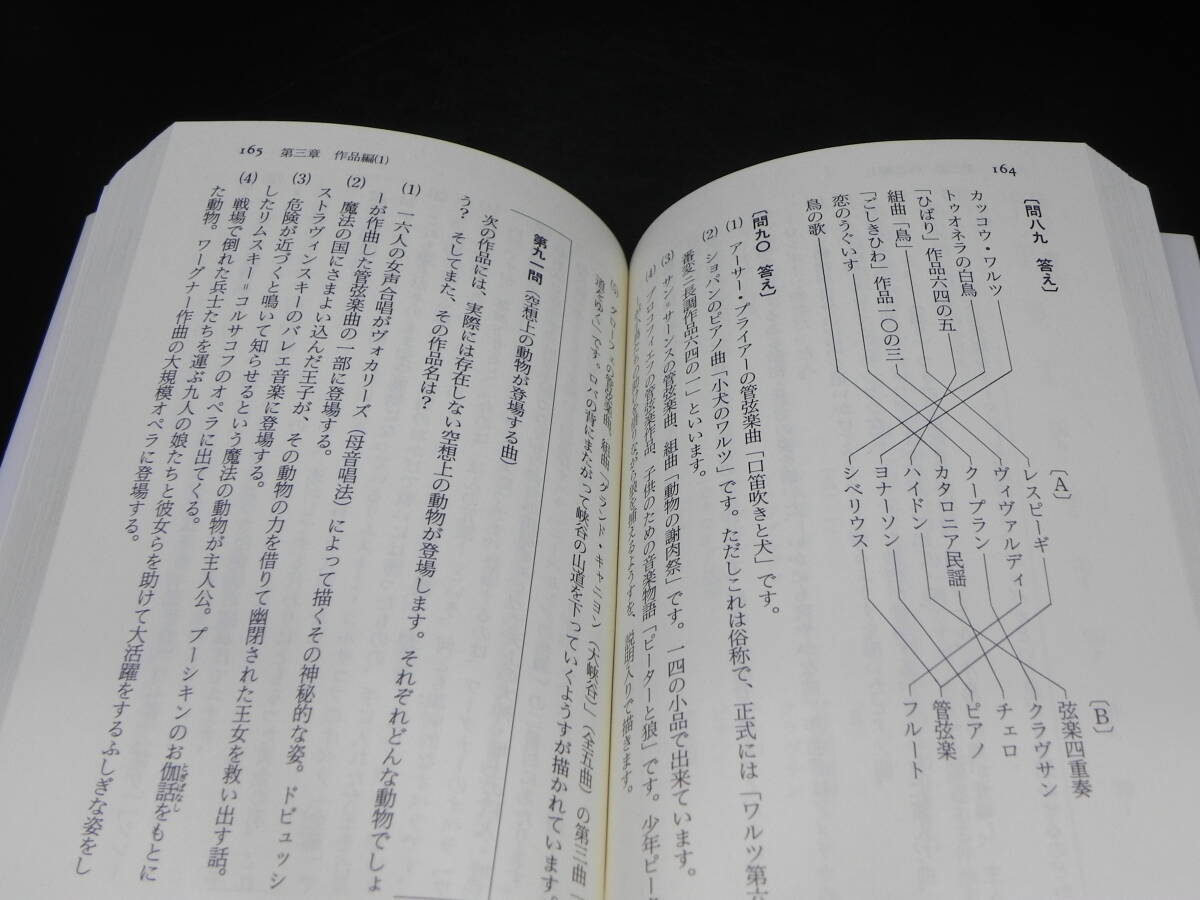 164
〔問八九　答え〕
カッコウ・ワルツ
トゥオネラの白鳥
「ひばり」作品六四の五
組曲「鳥」
「ごしきひわ」作品一〇の三
恋のうぐいす
鳥の歌
〔A〕
レスピーギ
ヴィヴァルディ
クープラン
カタロニア民謡
ハイドン
ヨナーソン
シベリウス
〔B〕
弦楽四重奏
クラヴサン
チェロ
ピアノ
管弦楽
フルート
〔問九〇　答え〕
(1)　アーサー・プライアーの管弦楽曲「口笛吹きと犬」です。
(2)　ショパンのピアノ曲「小犬のワルツ」です。ただしこれは俗称で、正式には「ワルツ第六
番変ニ長調作品六四の一」といいます。
(3)　サン＝サーンスの管弦楽曲、組曲「動物の謝肉祭」です。一四の小品で出来ています。
(4)　プロコフィエフの管弦楽作品、子供のための音楽物語「ピーターと狼」です。少年ピータ
捕えるようすを、説明入りで描きます。
の管弦楽曲、組曲「グランド・キャニヨン（大峡谷）」（全五曲）の第三曲「
道をゆく」です。ロバの背にまたがって峡谷の山道を下っていくようすが描かれています。
165　第三章　作品編(1)
第九一問（空想上の動物が登場する曲）
次の作品には、実際には存在しない空想上の動物が登場します。それぞれどんな動物でしょ
う？　そしてまた、その作品名は？
(1)　一六人の女声合唱がヴォカリーズ（母音唱法）によって描くその神秘的な姿。ドビュッシ
ーが作曲した管弦楽曲の一部に登場する。
(2)　魔法の国にさまよい込んだ王子が、その動物の力を借りて幽閉された王女を救い出す話。
ストラヴィンスキーのバレエ音楽に登場する。
(3)　危険が近づくと鳴いて知らせるという魔法の動物が主人公。プーシキンのお伽話をもとに
とぎばなし
したリムスキー＝コルサコフのオペラに出てくる。
(4)　戦場で倒れた兵士たちを運ぶ九人の娘たちと彼女らを助けて大活躍をするふしぎな姿をし
た動物。ワーグナー作曲の大規模オペラに登場する。